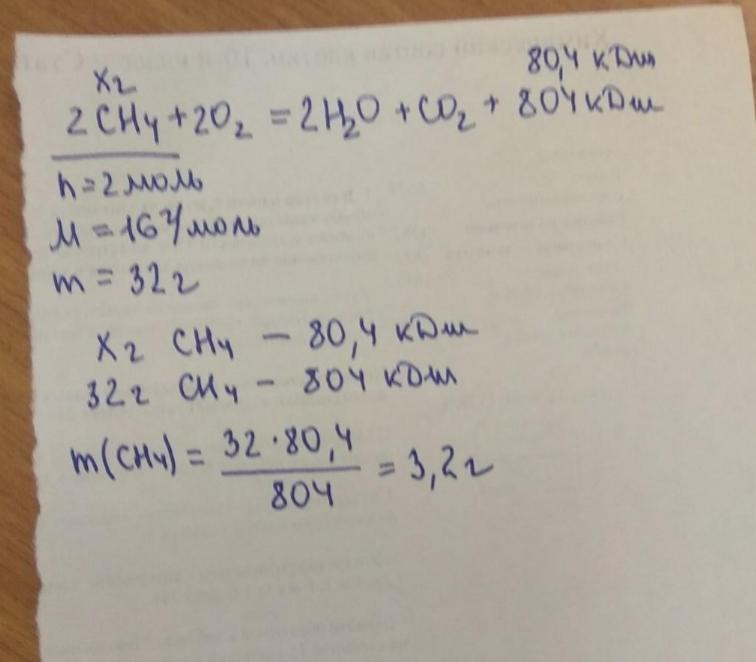 80,4 кДж
x г
2CH₄ + 2O₂ = 2H₂O + CO₂ + 804 кДж
n = 2 моль
M = 16 г/моль
m = 32 г
x г CH₄ — 80,4 кДж
32 г CH₄ — 804 кДж
m(CH₄) = 32 · 80,4 / 804 = 3,2 г